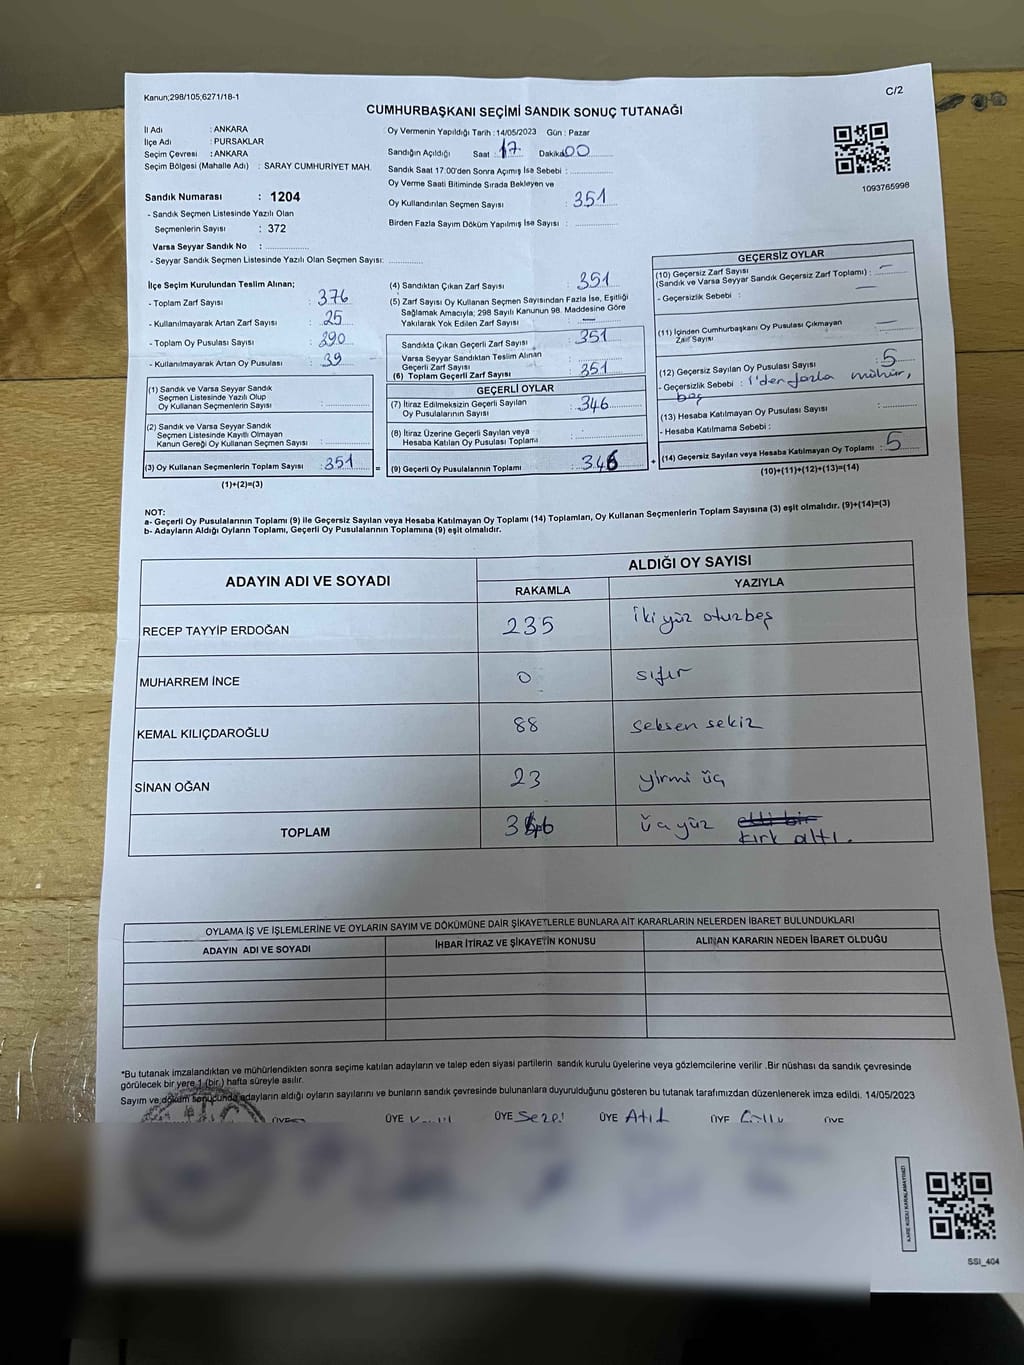 Kanun;298/105;6271/18-1
C/2
CUMHURBAŞKANI SEÇİMİ SANDIK SONUÇ TUTANAĞI
İl Adı : ANKARA
İlçe Adı : PURSAKLAR
Seçim Çevresi : ANKARA
Seçim Bölgesi (Mahalle Adı) : SARAY CUMHURİYET MAH.
Sandık Numarası : 1204
- Sandık Seçmen Listesinde Yazılı Olan
Seçmenlerin Sayısı : 372
Varsa Seyyar Sandık No :
- Seyyar Sandık Seçmen Listesinde Yazılı Olan Seçmen Sayısı:
Oy Vermenin Yapıldığı Tarih : 14/05/2023 Gün : Pazar
Sandığın Açıldığı Saat : 17 Dakika 00
Sandık Saat 17:00'den Sonra Açımış İse Sebebi :
Oy Verme Saati Bitiminde Sırada Bekleyen ve
Oy Kullandırılan Seçmen Sayısı : 351
Birden Fazla Sayım Döküm Yapılmış İse Sayısı :
1093765998
İlçe Seçim Kurulundan Teslim Alınan;
- Toplam Zarf Sayısı : 376
- Kullanılmayarak Artan Zarf Sayısı : 25
- Toplam Oy Pusulası Sayısı : 390
- Kullanılmayarak Artan Oy Pusulası : 39
(1) Sandık ve Varsa Seyyar Sandık
Seçmen Listesinde Yazılı Olup
Oy Kullanan Seçmenlerin Sayısı :
(2) Sandık ve Varsa Seyyar Sandık
Seçmen Listesinde Kayıtlı Olmayan
Kanun Gereği Oy Kullanan Seçmen Sayısı :
(3) Oy Kullanan Seçmenlerin Toplam Sayısı : 351 =
(1)+(2)=(3)
(4) Sandıktan Çıkan Zarf Sayısı : 351
(5) Zarf Sayısı Oy Kullanan Seçmen Sayısından Fazla İse, Eşitliği
Sağlamak Amacıyla; 298 Sayılı Kanunun 98. Maddesine Göre
Yakılarak Yok Edilen Zarf Sayısı : —
Sandıkta Çıkan Geçerli Zarf Sayısı : 351
Varsa Seyyar Sandıktan Teslim Alınan
Geçerli Zarf Sayısı :
(6) Toplam Geçerli Zarf Sayısı : 351
GEÇERLİ OYLAR
(7) İtiraz Edilmeksizin Geçerli Sayılan
Oy Pusulalarının Sayısı : 346
(8) İtiraz Üzerine Geçerli Sayılan veya
Hesaba Katılan Oy Pusulası Toplamı :
(9) Geçerli Oy Pusulalarının Toplamı : 346 +
GEÇERSİZ OYLAR
(10) Geçersiz Zarf Sayısı
(Sandık ve Varsa Seyyar Sandık Geçersiz Zarf Toplamı) : —
- Geçersizlik Sebebi : —
(11) İçinden Cumhurbaşkanı Oy Pusulası Çıkmayan
Zarf Sayısı : —
(12) Geçersiz Sayılan Oy Pusulası Sayısı : 5
- Geçersizlik Sebebi : 1'den fazla mühür,
boş
(13) Hesaba Katılmayan Oy Pusulası Sayısı :
- Hesaba Katılmama Sebebi :
(14) Geçersiz Sayılan veya Hesaba Katılmayan Oy Toplamı : 5
(10)+(11)+(12)+(13)=(14)
NOT:
a- Geçerli Oy Pusulalarının Toplamı (9) ile Geçersiz Sayılan veya Hesaba Katılmayan Oy Toplamı (14) Toplamları, Oy Kullanan Seçmenlerin Toplam Sayısına (3) eşit olmalıdır. (9)+(14)=(3)
b- Adayların Aldığı Oyların Toplamı, Geçerli Oy Pusulalarının Toplamına (9) eşit olmalıdır.
ADAYIN ADI VE SOYADI
ALDIĞI OY SAYISI
RAKAMLA YAZIYLA
RECEP TAYYİP ERDOĞAN 235 iki yüz oturbeş
MUHARREM İNCE 0 sıfır
KEMAL KILIÇDAROĞLU 88 seksen sekiz
SİNAN OĞAN 23 yirmi üç
TOPLAM 346 üç yüz elli bir
kırk altı.
OYLAMA İŞ VE İŞLEMLERİNE VE OYLARIN SAYIM VE DÖKÜMÜNE DAİR ŞİKAYETLERLE BUNLARA AİT KARARLARIN NELERDEN İBARET BULUNDUKLARI
ADAYIN ADI VE SOYADI İHBAR İTİRAZ VE ŞİKAYETİN KONUSU ALINAN KARARIN NEDEN İBARET OLDUĞU
*Bu tutanak imzalandıktan ve mühürlendikten sonra seçime katılan adayların ve talep eden siyasi partilerin sandık kurulu üyelerine veya gözlemcilerine verilir .Bir nüshası da sandık çevresinde
görülecek bir yere 1 (bir ) hafta süreyle asılır.
Sayım ve döküm sonucunda adayların aldığı oyların sayılarını ve bunların sandık çevresinde bulunanlara duyurulduğunu gösteren bu tutanak tarafımızdan düzenlenerek imza edildi. 14/05/2023
ÜYE ÜYE ÜYE ÜYE Atıf ÜYE ÜYE
KARE KODU KARALAMAYINIZ!
SSI_404